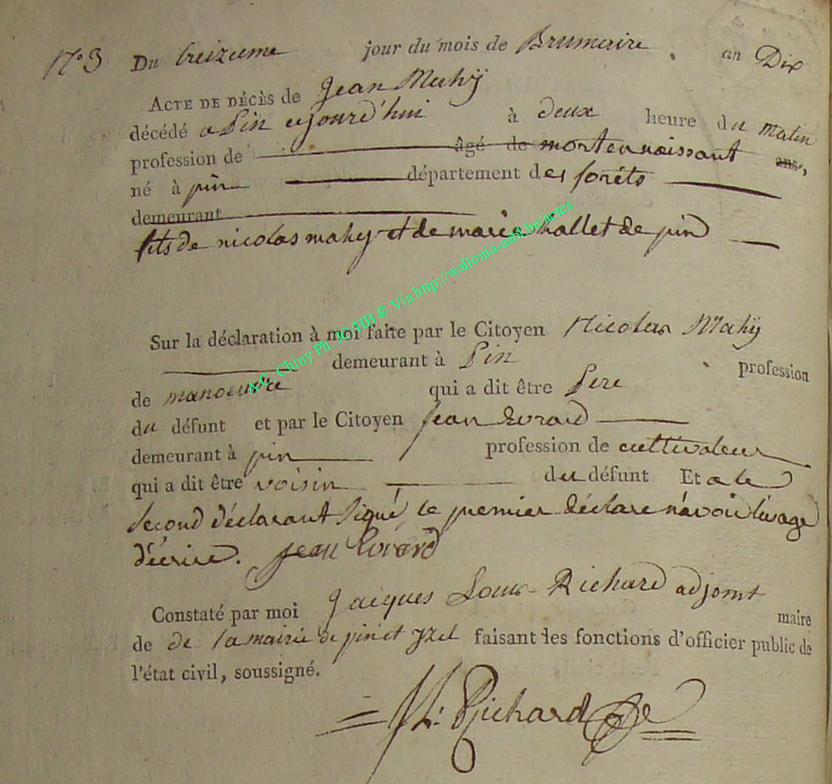 N.° 3 Du treizieme jour du mois de Brumaire an Dix
ACTE DE DÉCÈS de Jean Mahÿ
décédé a Pin cejourd'hui à deux heure du matin
profession de âgé de mortennaissant ans,
né à pin département des forêts
demeurant
fils de nicolas mahy et de marie hallet de pin
Sur la déclaration à moi faite par le Citoyen Nicolas Mahÿ
demeurant à Pin profession
de manoeuvre qui a dit être Pere
du défunt et par le Citoyen Jean Evrard
demeurant à pin profession de cultivateur
qui a dit être voisin du défunt Et a le
second déclarant signé le premier déclare n'avoir l'usage
d'écrire. Jean Evrard
Constaté par moi Jacques Louis Richard adjoint maire
de de la mairie de pin et Izel faisant les fonctions d'officier public de
l'état civil, soussigné.
Richard
A.C. Chiny Ph. JC HB © Via http://wallonia-asbl.be/acks